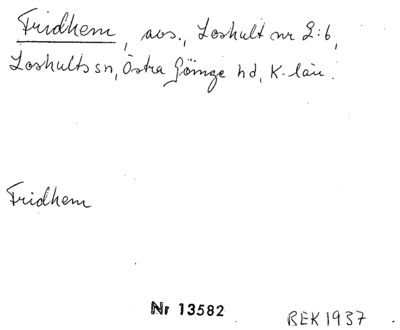 Fridhem, avs., Loshult nr 2:6,
Loshults sn, Östra Göinge hd, K-län.
Fridhem
Nr 13582
BEK 1937